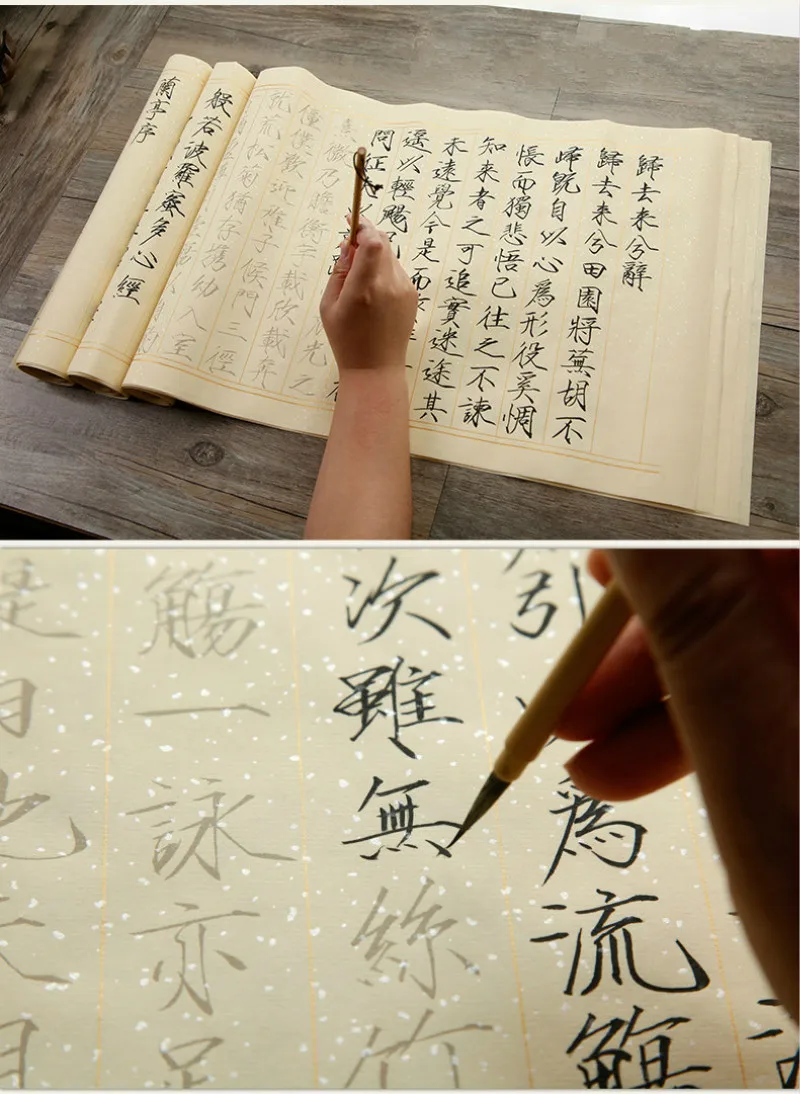 歸去来兮辭
歸去来兮田園將蕪胡不
歸既自以心為形役奚惆
悵而獨悲悟已往之不諫
知来者之可追實迷途其
未遠覺今是而
遥以輕颺
問征
光之
微乃瞻衡宇載欣載奔
僮僕歡迎稚子候門三徑
就荒松菊猶存携幼入室
般若波羅蜜多心經
蘭亭序
引
為流觴
次雖無絲竹
觴一詠亦足
是日也天朗